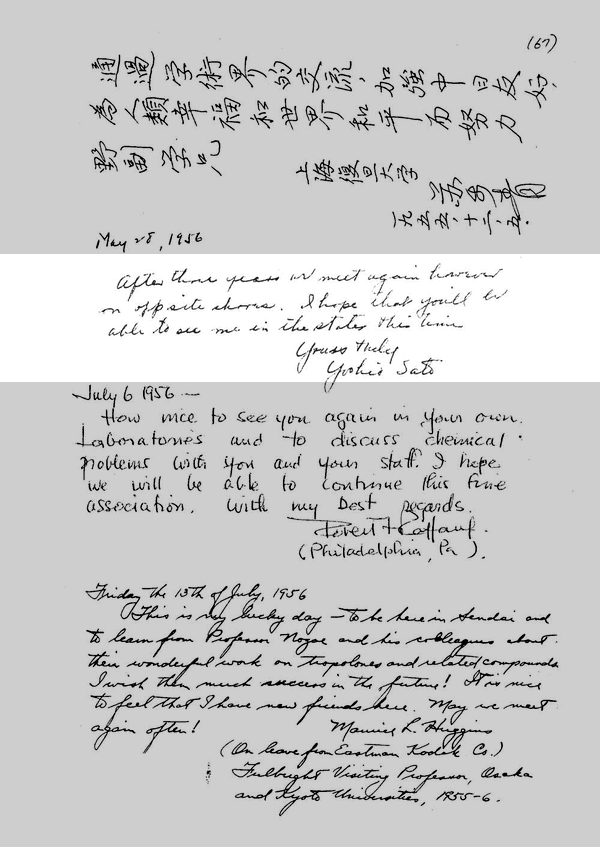 (67)
通過学術界的交流，加強中日友好，
為人類幸福和世界和平而努力
野副学兄
上海復旦大学
一九五五、十二、五.
May 28, 1956
After three years we meet again however
on opposite shores. I hope that you'll be
able to see me in the states this time
Yours truly
Yoshio Sato
July 6 1956 —
How nice to see you again in your own
Laboratories and to discuss chemical
problems with you and your staff. I hope
we will be able to continue this fine
association. With my best regards.
Robert
(Philadelphia, Pa).
Friday the 13th of July, 1956
This is my lucky day — to be here in Sendai and
to learn from Professor Nozoe and his colleagues about
their wonderful work on tropolones and related compounds.
I wish them much success in the future! It is nice
to feel that I have new friends here. May we meet
again often!
Maurice L. Huggins
(On leave from Eastman Kodak Co.)
Fulbright Visiting Professor, Osaka
and Kyoto Universities, 1955-6.